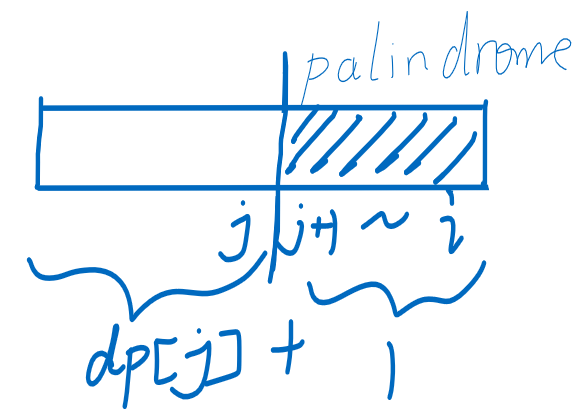 palindrome
j j+1 ~ i
dp[j] + 1